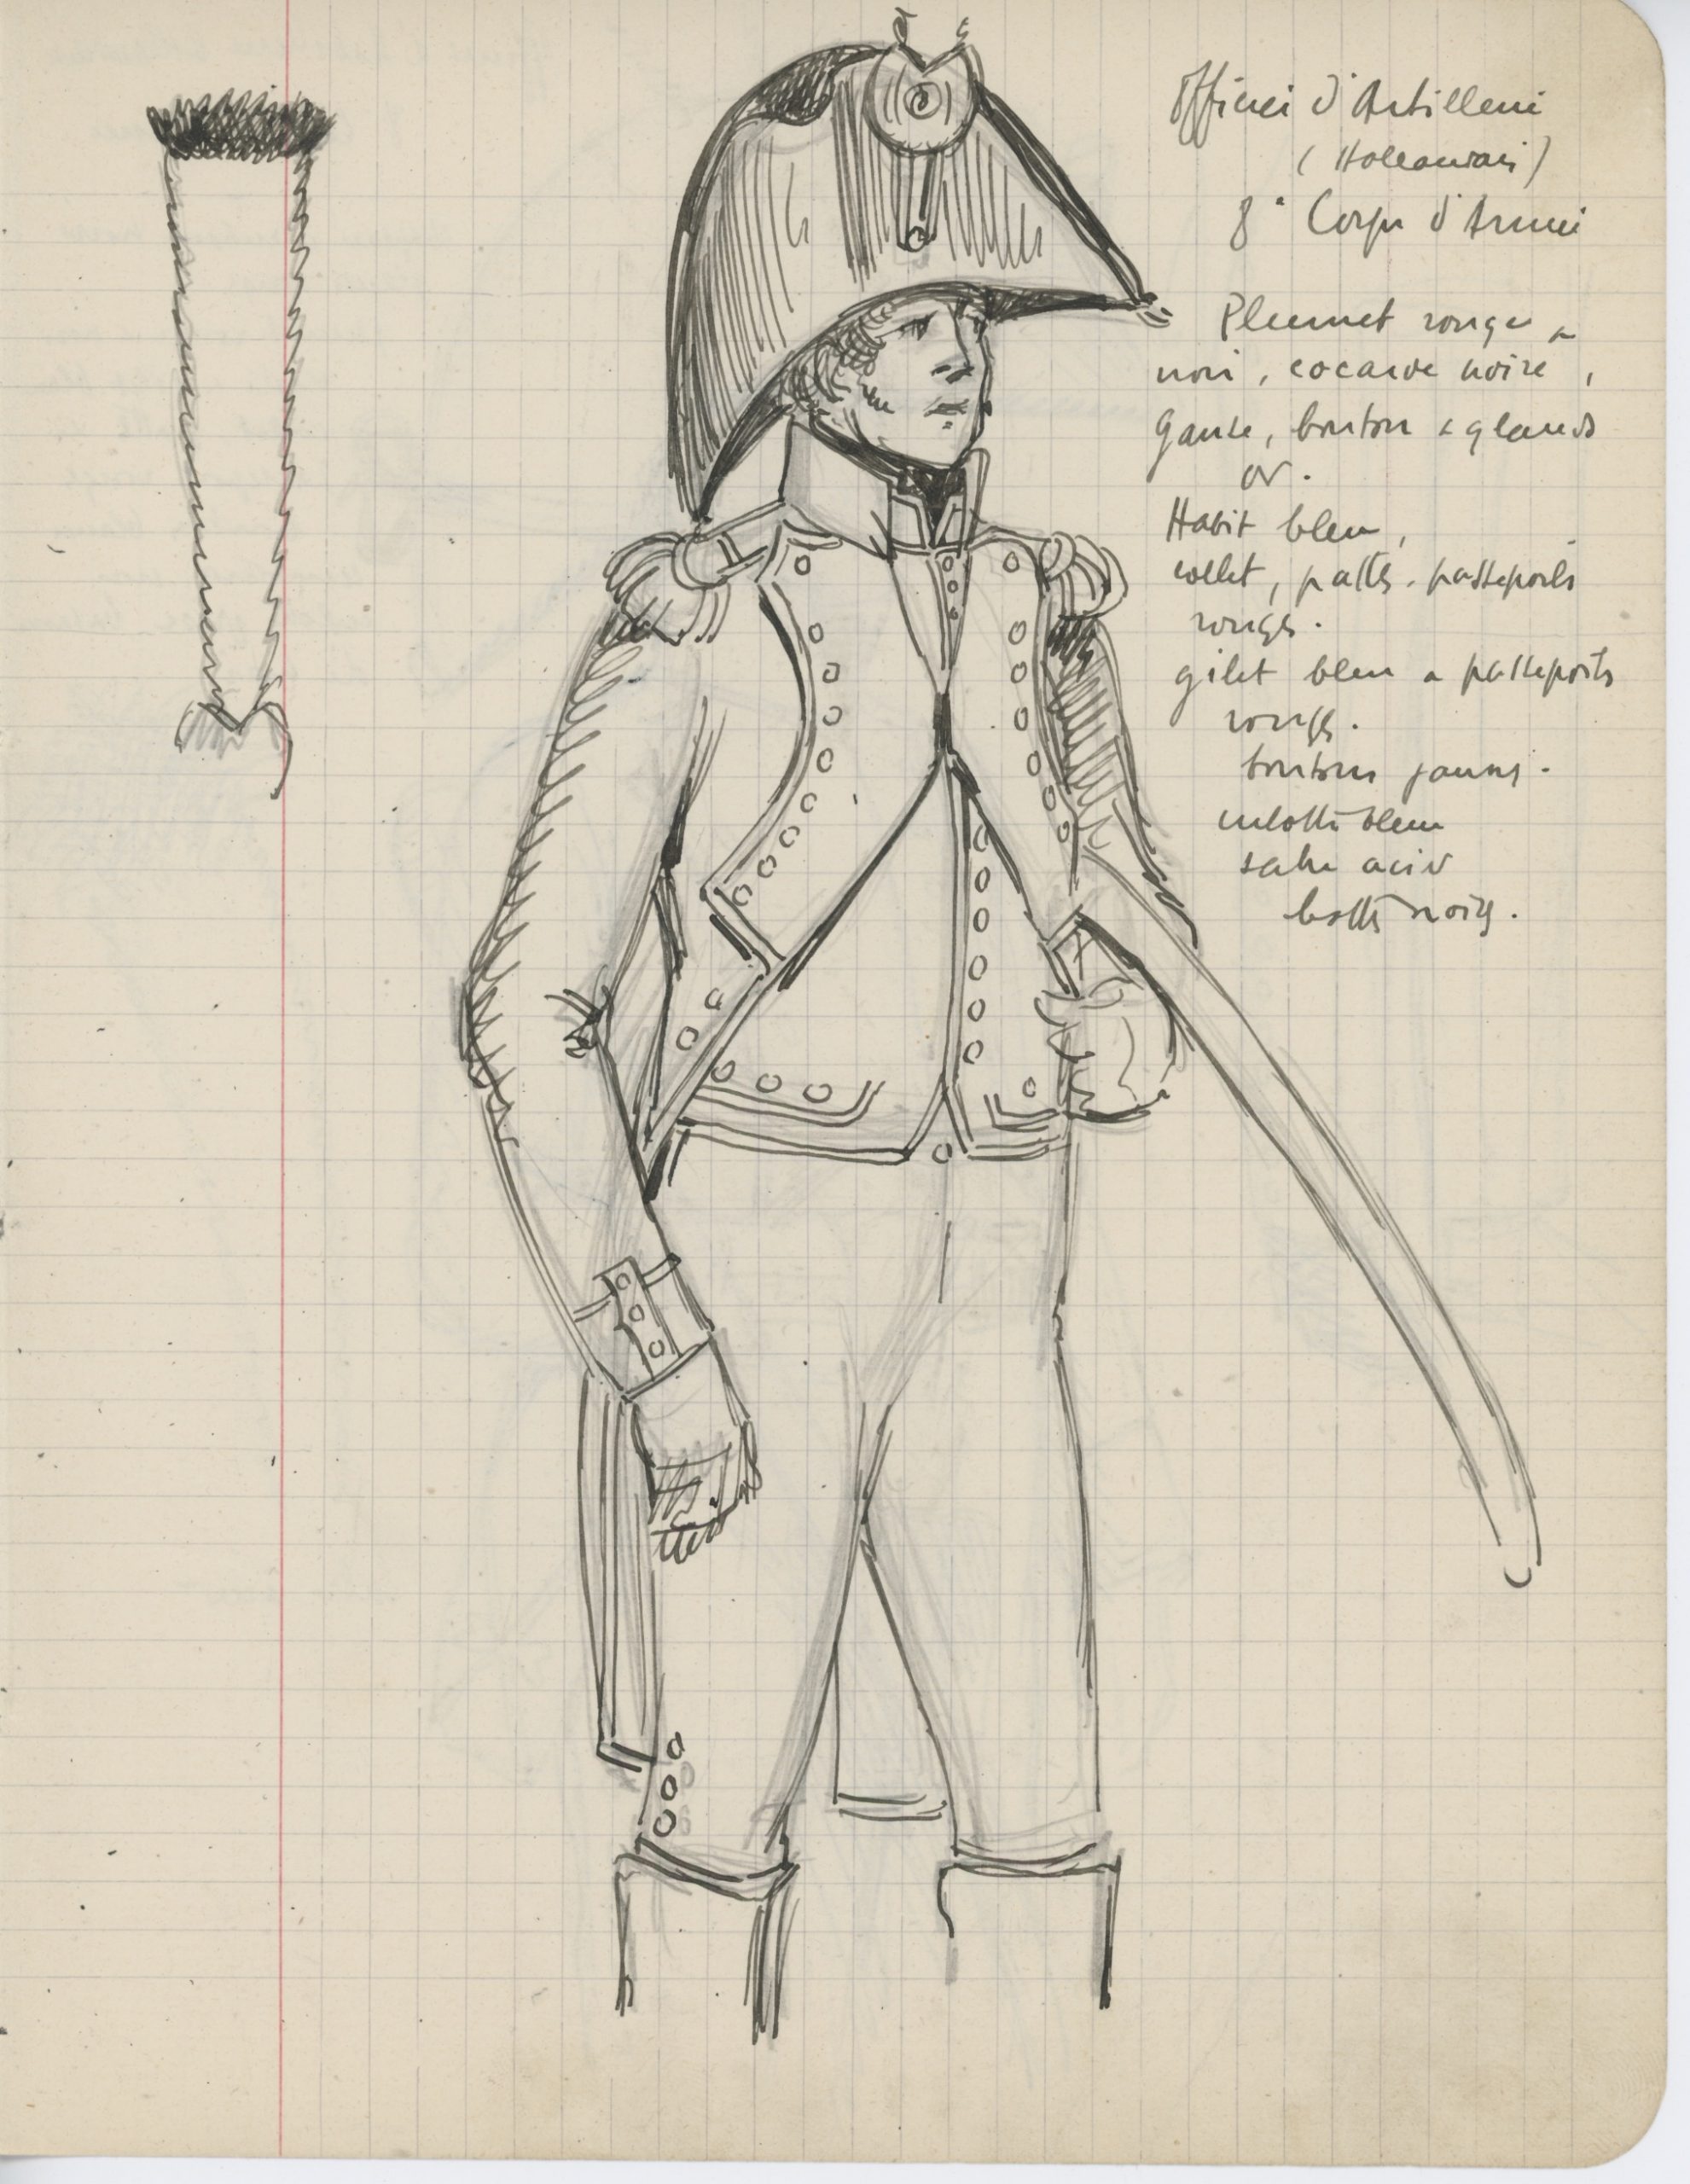 Officier d'Artillerie
(Hollandais)
8e Corps d'Armée
Plumet rouge &
noir, cocarde noire,
Ganse, bouton & glands
or.
Habit bleu,
collet, pattes, passepoils
rouges.
gilet bleu a passepoils
rouges.
boutons jaunes.
culotte bleu
sabre acier
bottes noires.